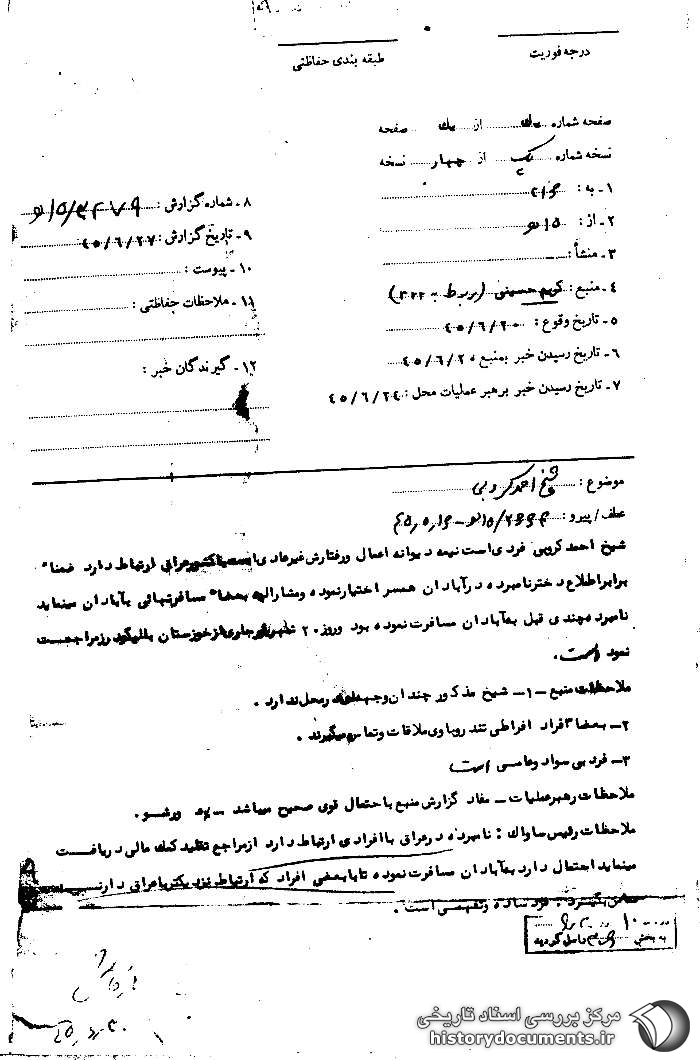 درجه فوریت
طبقه بندی حفاظتی
صفحه شماره یک از یک صفحه
نسخه شماره یک از چهار نسخه
۱ـ به :
۲ـ از : ۱۵ هـ
۳ـ منشأ :
۴ـ منبع : کریم حسینی (مربوط به ۳۲۲)
۵ـ تاریخ وقوع : ۴۵/۶/۲۰
۶ـ تاریخ رسیدن خبر بمنبع ۴۵/۶/۲۰
۷ـ تاریخ رسیدن خبر برهبر عملیات محل : ۴۵/۶/۲۴
۸ـ شماره گزارش : ۱۵/۳۴۷۹ هـ
۹ـ تاریخ گزارش : ۴۵/۶/۲۷
۱۰ـ پیوست :
۱۱ـ ملاحظات حفاظتی :
۱۲ـ گیرندگان خبر :
موضوع : شیخ احمد کروبی
عطف / پیرو :
شیخ احمد کروبی فردی است نیمه دیوانه اعمال ورفتارش غیرعادی است با کشور عراق ارتباط دارد ضمنا"
برابر اطلاع دختر نامبرده در آبادان همسر اختیار نموده ومشارالیه بعضا" مسافرتهائی بآبادان مینماید
نامبرده چندی قبل به آبادان مسافرت نموده بود وروز ۲۰ شهریور جاری از خوزستان بالیگودرز مراجعت
نموده است.
ملاحظات منبع ـ ۱ـ شیخ مذکور چندان وجهه ای در محل ندارد .
۲ـ بعضا" افراد افراطی تندرو با وی ملاقات وتماس میگیرند .
۳ـ فرد بی سواد وعامی است
ملاحظات رهبر عملیات ـ مفاد گزارش منبع با احتمال قوی صحیح میباشد ـ
ملاحظات رئیس ساواک : نامبرده در عراق با افرادی ارتباط دارد از مراجع تقلید کمک مالی دریافت
مینماید احتمال دارد به آبادان مسافرت نموده تا با بعضی افراد که ارتباط نزدیکتر با عراق دارند
تماس بگیرد . فرد ساده وفهمی است .
به بخش واصل گردید
مرکز بررسی اسناد تاریخی
historydocuments.ir